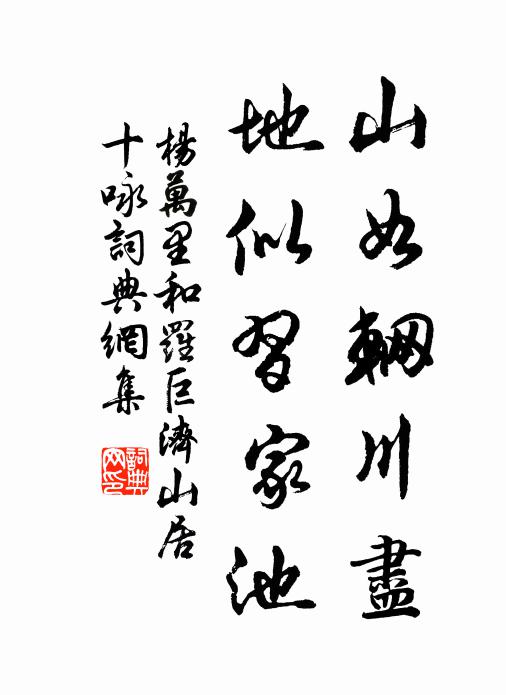 山如輞川盡
地似習家池
楊萬里和羅巨濟山居
十咏詞典網集
詞典
网印